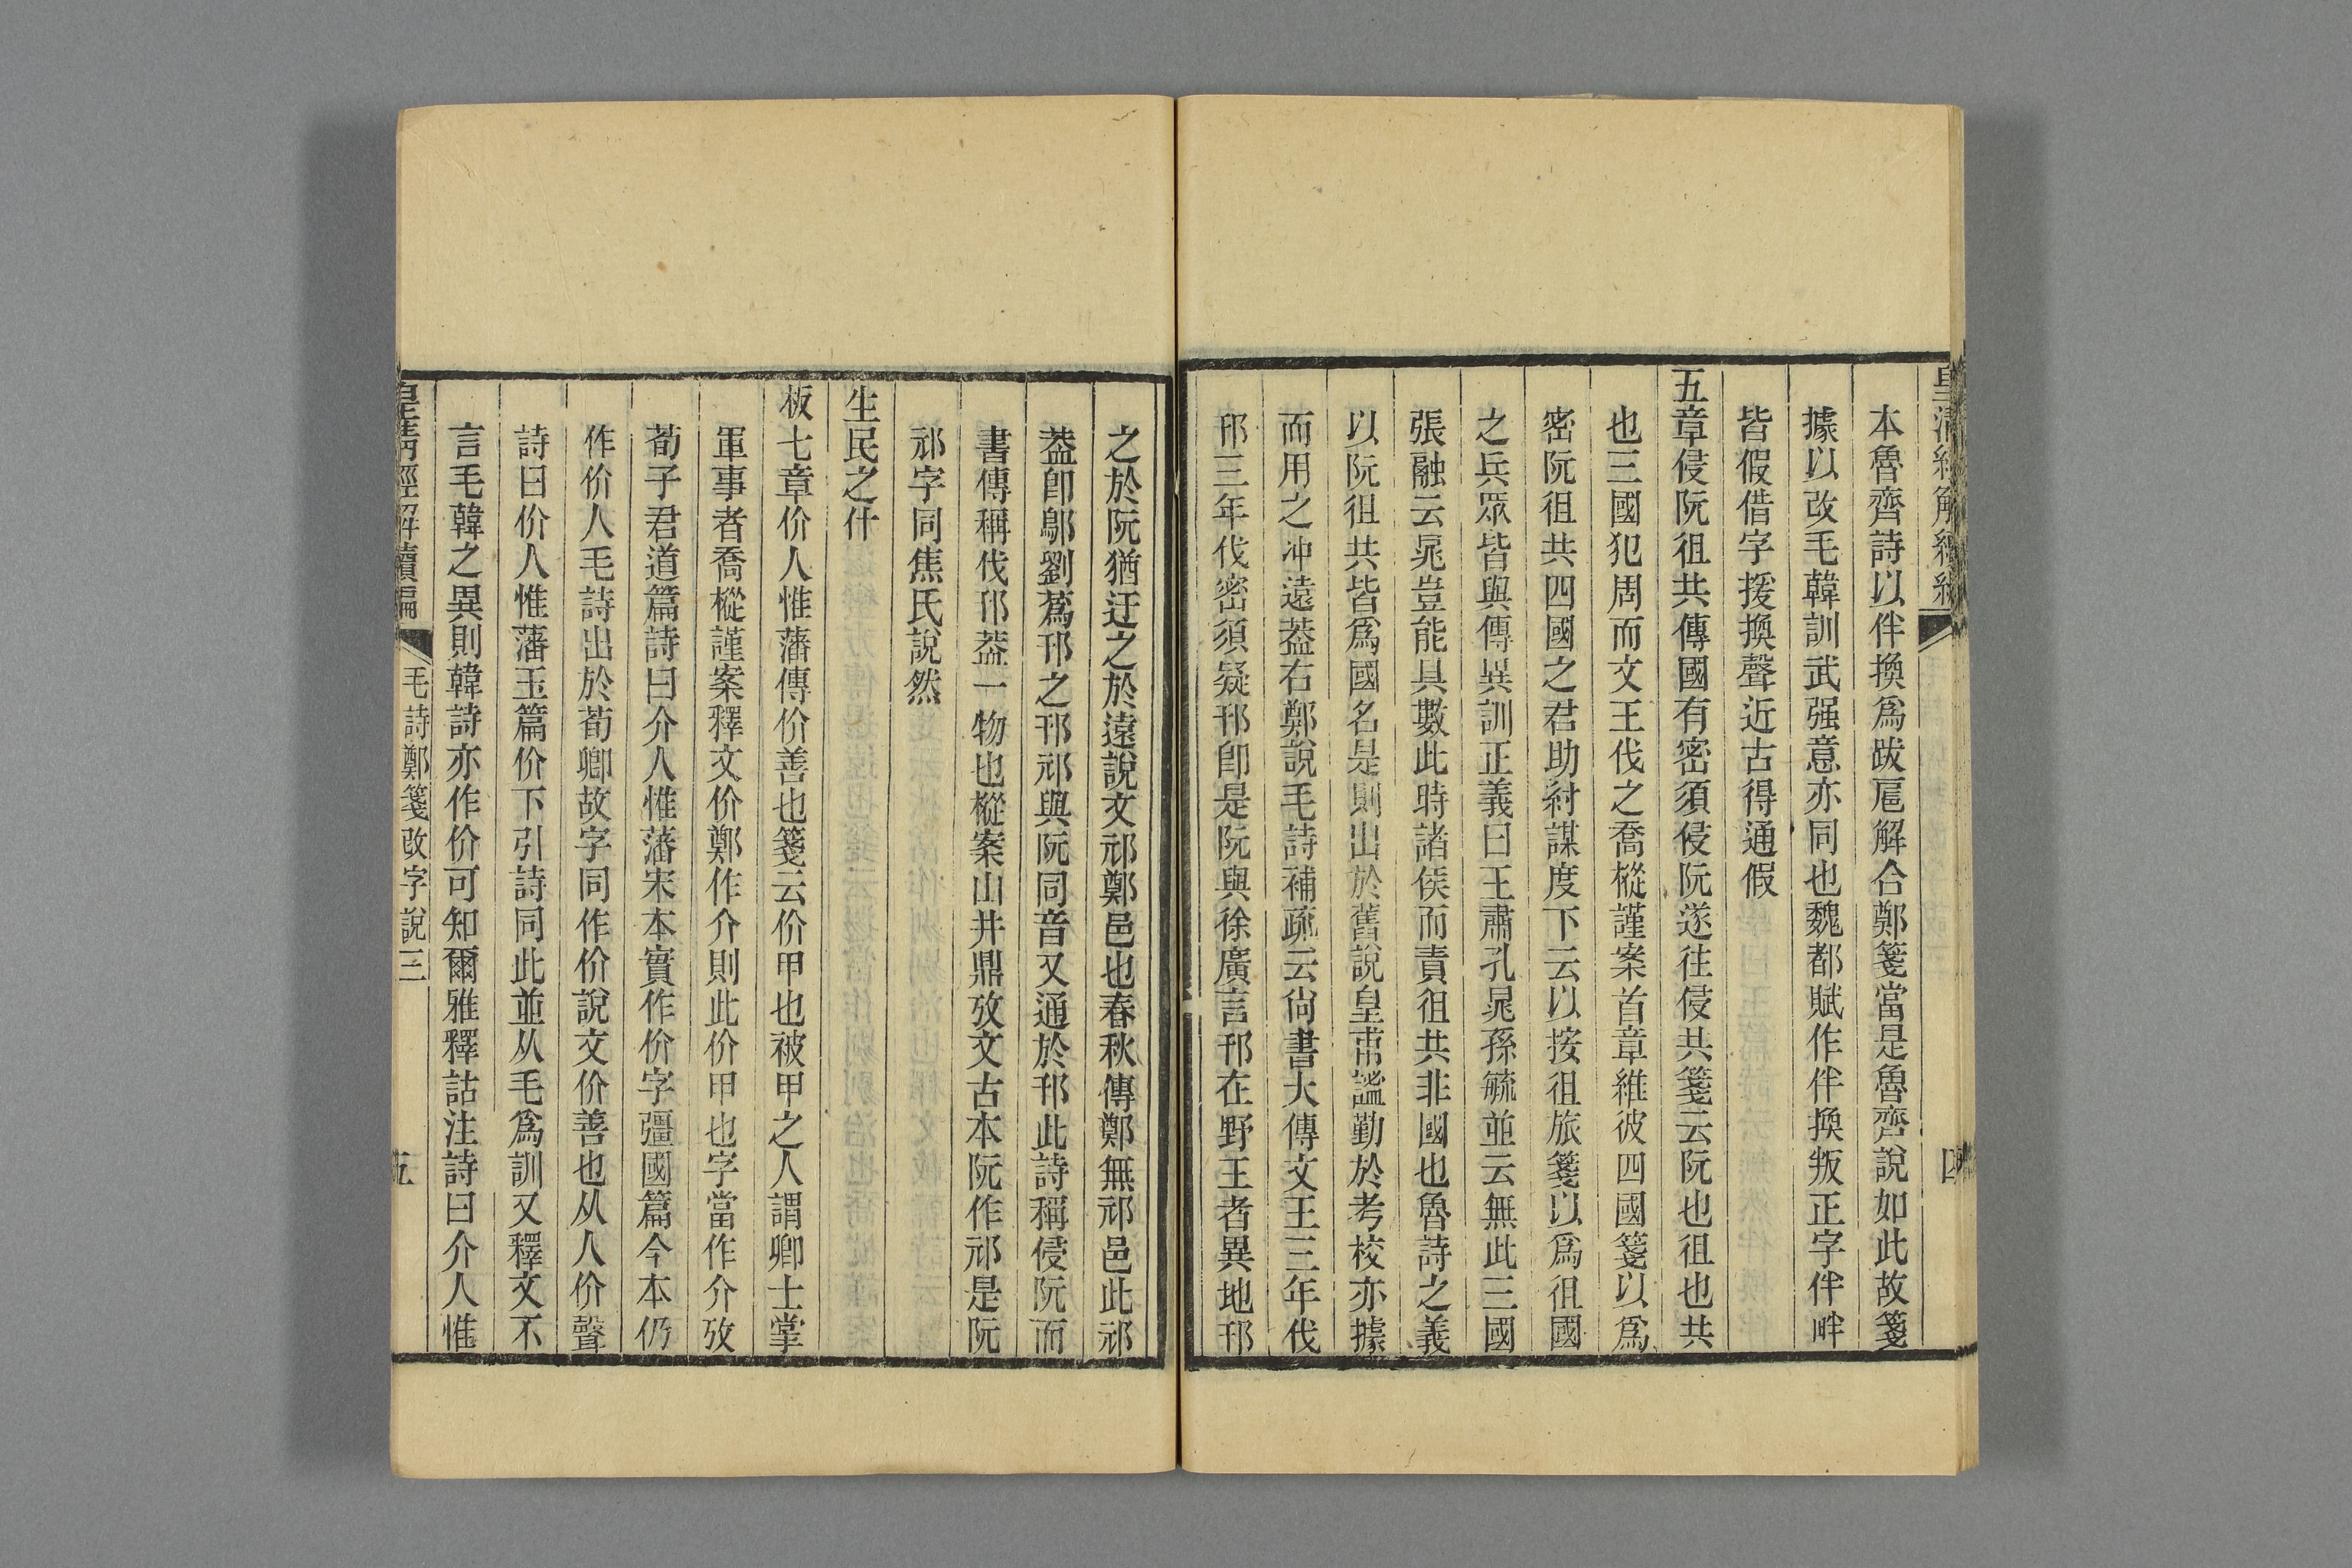 本魯齊詩以伴換爲跋扈解合鄭箋當是魯齊說如此故箋
據以改毛韓訓武强意亦同也魏都賦作伴換叛正字伴畔
皆假借字援換聲近古得通假
五章侵阮徂共傳國有密須侵阮遂往侵共箋云阮也徂也共
也三國犯周而文王伐之喬樅謹案首章維彼四國箋以爲
密阮徂共四國之君助紂謀度下云以按徂旅箋以爲徂國
之兵眾皆與傳異訓正義曰王肅孔晁孫毓並云無此三國
張融云晁豈能具數此時諸侯而責徂共非國也魯詩之義
以阮徂共皆爲國名是則出於舊說皇甫謐勤於考校亦據
而用之冲遠葢右鄭說毛詩補疏云尙書大傳文王三年伐
邘三年伐密須疑邘卽是阮與徐廣言邘在野王者異地邘
之於阮猶迂之於遠說文祁鄭邑也春秋傳鄭無祁邑此祁
葢卽鄔劉蒍邘之邘祁與阮同音又通於邘此詩稱侵阮而
書傳稱伐邘葢一物也樅案山井鼎攷文古本阮作祁是阮
祁字同焦氏說然
生民之什
板七章价人惟藩傳价善也箋云价甲也被甲之人謂卿士掌
軍事者喬樅謹案釋文价鄭作介則此价甲也字當作介攷
荀子君道篇詩曰介人惟藩宋本實作价字彊國篇今本仍
作价人毛詩出於荀卿故字同作价說文价善也从人价聲
詩曰价人惟藩玉篇价下引詩同此並从毛爲訓又釋文不
言毛韓之異則韓詩亦作价可知爾雅釋詁注詩曰介人惟
皇淸經解續編
毛詩鄭箋改字說三
五